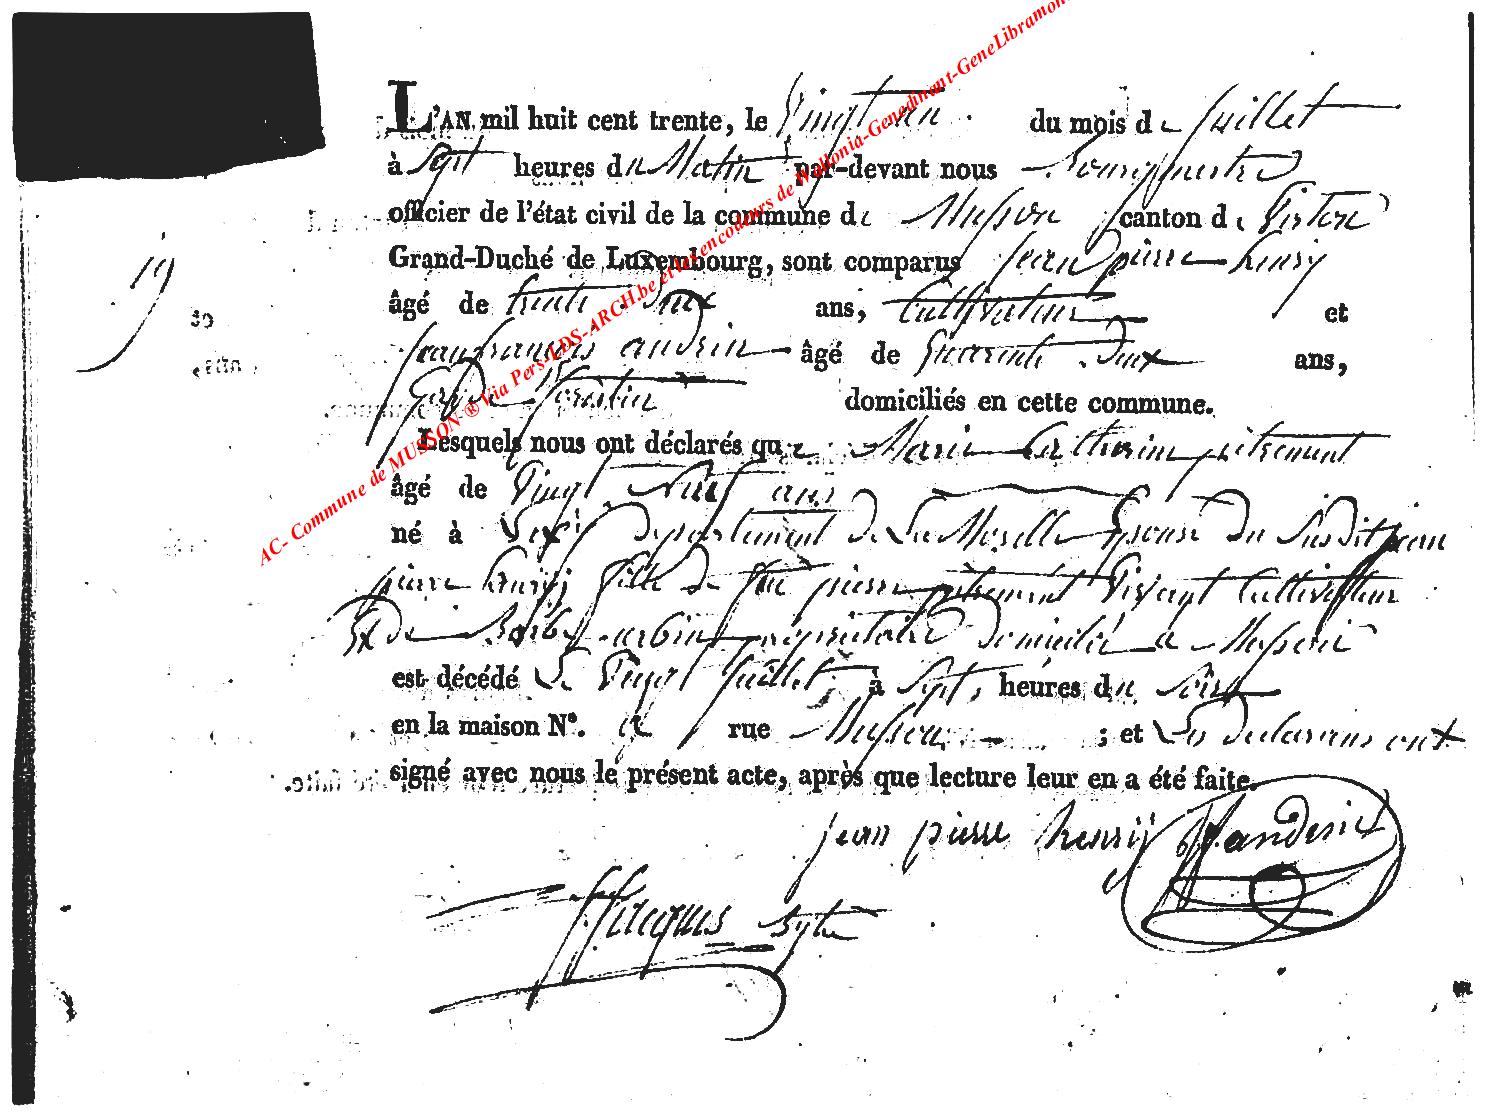 L'AN mil huit cent trente, le Vingt un du mois de Juillet
à Sept heures du Matin par-devant nous Bourgmestre
officier de l'état civil de la commune de Musson canton de Virton
Grand-Duché de Luxembourg, sont comparus Jean pierre henry
19
âgé de trente deux ans, Cultivateur et
jean françois andrin âgé de Quarante deux ans,
Garde forestier domiciliés en cette commune.
Lesquels nous ont déclarés que Marie Catherine pitrement
âgé de Vingt Neuf ans
né à departement de La Moselle Epouse du Susdit jean
pierre henrÿ fille de feu pierre pitrement Vivant Cultivateur
Et de Barbe propriétaire domiciliée a Musson
est décédé Le Vingt Juillet, à Sept, heures du Soir
en la maison N°. a rue Musson ; et Les declarans ont
signé avec nous le présent acte, après que lecture leur en a été faite.
jean pierre henrÿ
Jacques
AC- Commune de MUSSON ® Via Pers-LDS-ARCH.be et les encodeurs de Wallonia-Genedinant-GeneLibramon